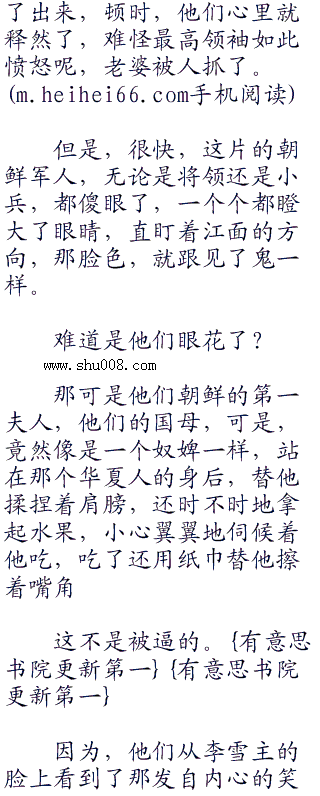 了出来，顿时，他们心里就
释然了，难怪最高领袖如此
愤怒呢，老婆被人抓了。
(m.heihei66.com手机阅读)
但是，很快，这片的朝
鲜军人，无论是将领还是小
兵，都傻眼了，一个个都瞪
大了眼睛，直盯着江面的方
向，那脸色，就跟见了鬼一
样。
难道是他们眼花了？
www.shu008.com
那可是他们朝鲜的第一
夫人，他们的国母，可是，
竟然像是一个奴婢一样，站
在那个华夏人的身后，替他
揉捏着肩膀，还时不时地拿
起水果，小心翼翼地伺候着
他吃，吃了还用纸巾替他擦
着嘴角
这不是被逼的。{有意思
书院更新第一}{有意思书院
更新第一}
因为，他们从李雪主的
脸上看到了那发自内心的笑